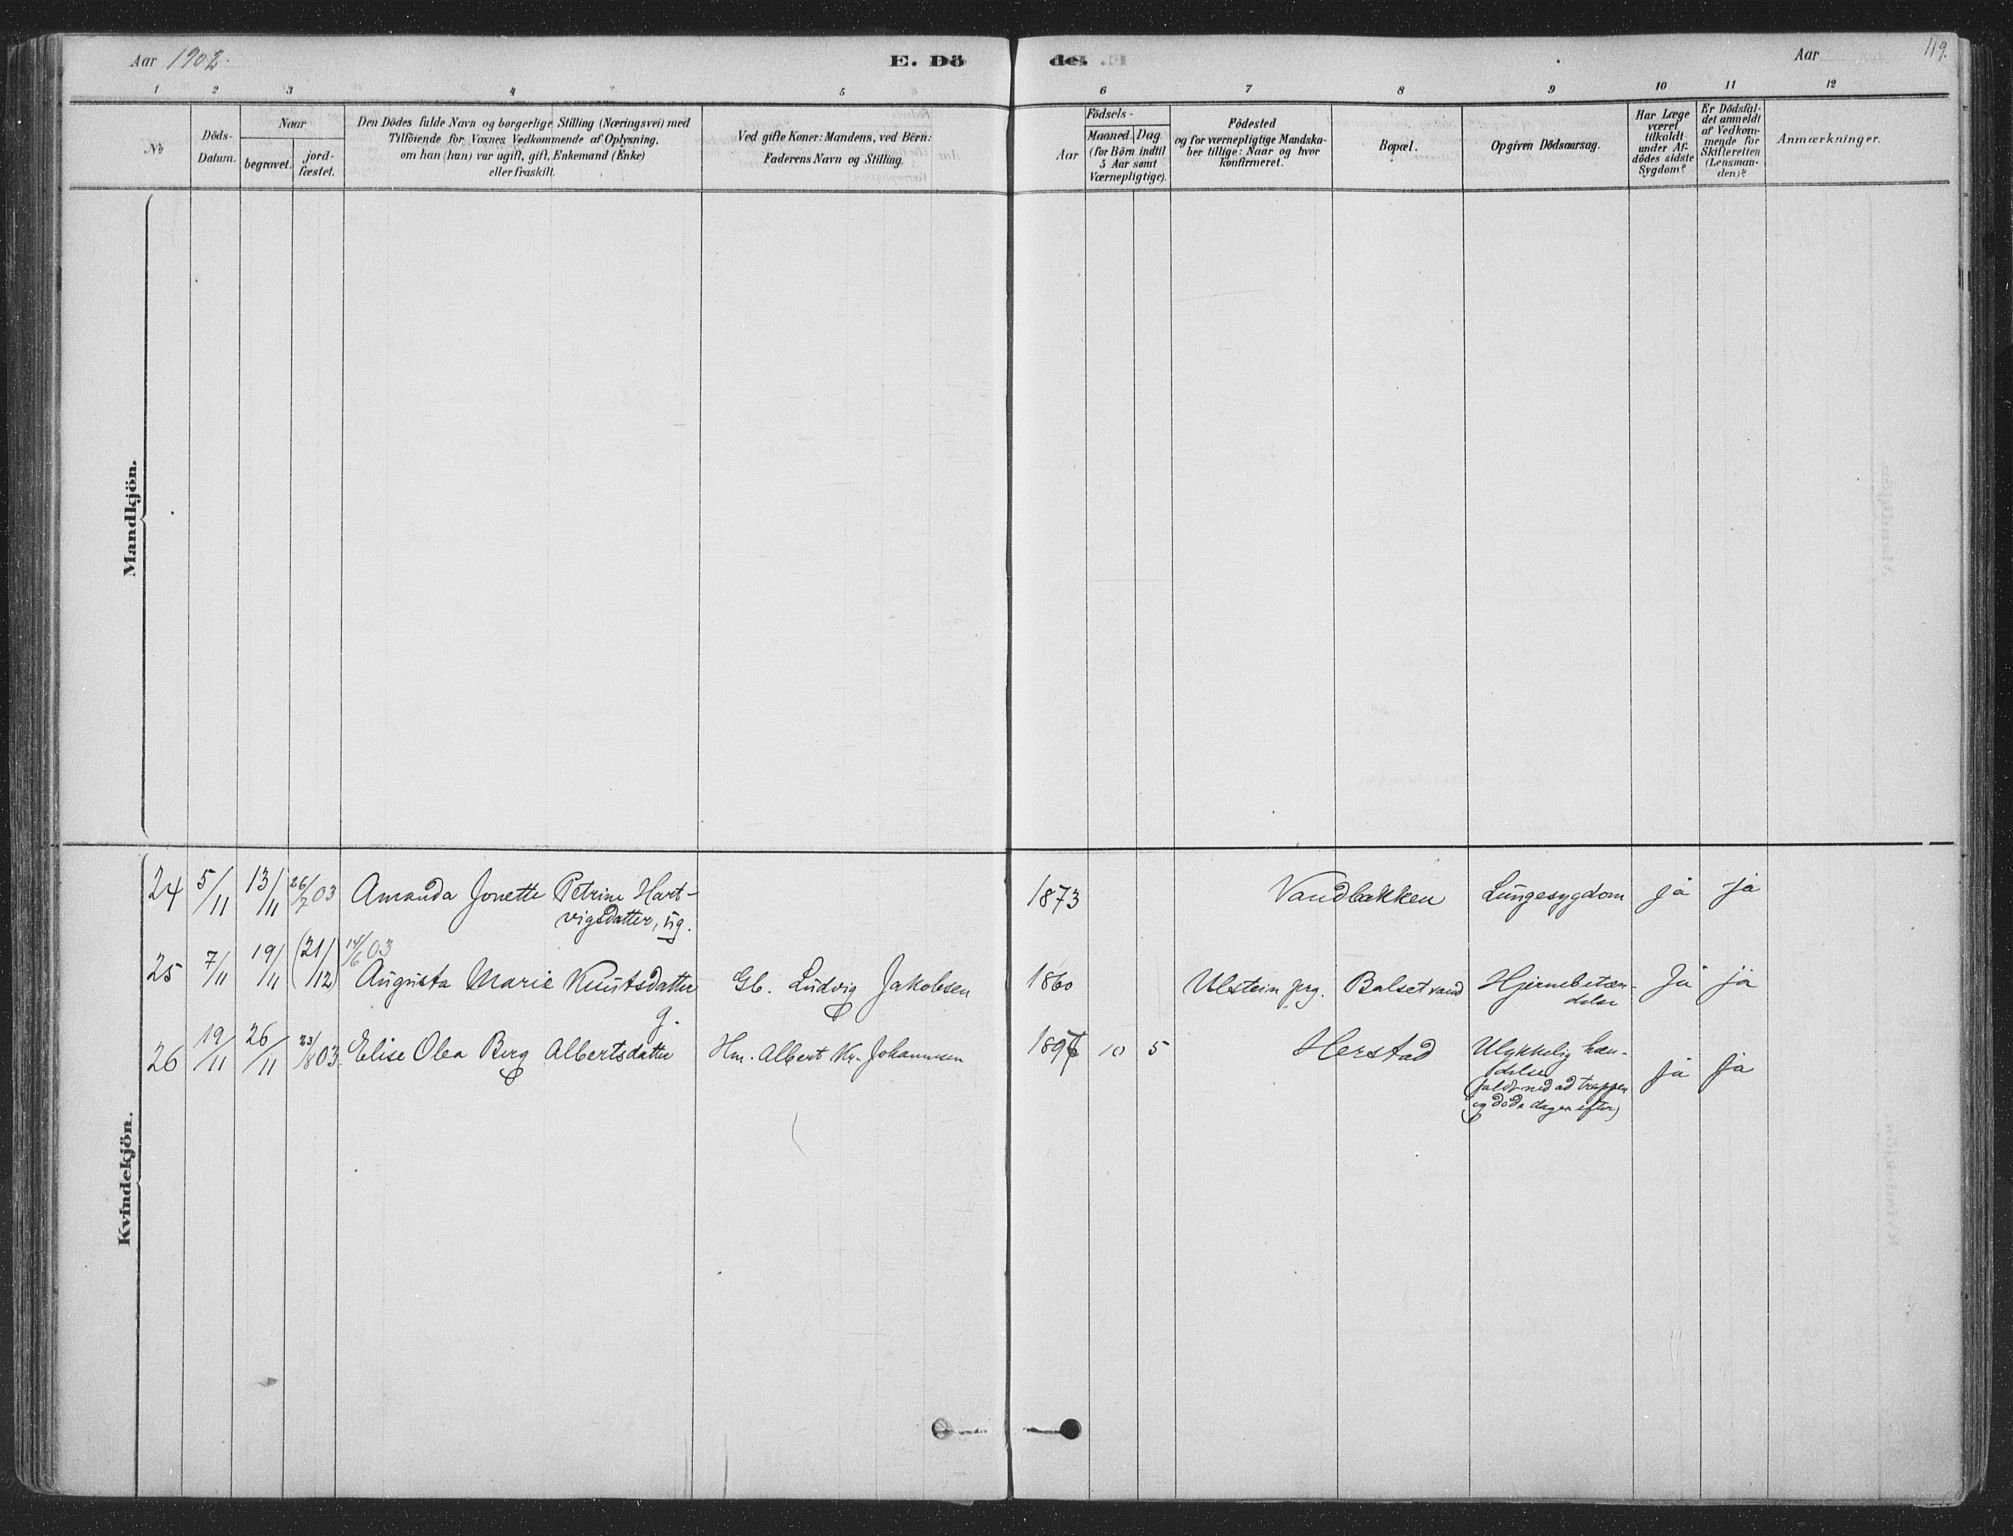 Aar 1902.
E. Döde.
Aar
119.
1 2 3 4 5 6 7 8 9 10 11 12
No
Döds-
Datum.
Naar
begravet.
jord-
fæstet.
Den Dödes fulde Navn og borgerlige Stilling (Næringsvei) med
Tilföiende for Voxnes Vedkommende af Oplysning,
om han (hun) var ugift, gift, Enkemand (Enke)
eller fraskilt.
Ved gifte Koner: Mandens, ved Börn:
Faderens Navn og Stilling.
Födsels-
Aar
Maaned.
Dag
(for Börn indtil
5 Aar samt
Værnepligtige).
Födested
og for værnepligtige Mandska-
ber tillige: Naar og hvor
konfirmeret.
Bopæl.
Opgiven Dödsaarsag.
Har Læge
været
tilkaldt
under Af-
dödes sidste
Sygdom?
Er Dödsfal-
det anmeldt
af Vedkom-
mende for
Skifteretten
(Lensman-
den)?
Anmærkninger.
Mandkjön.
Kvindekjön.
24 5/11 13/11 26/7 03 Amanda Jonette Petrine Hart- 1873 Vandbakken Lungesygdom ja ja
vigsdatter, ug.
25 7/11 19/11 (21/12) 14/6 03
Augusta Marie Knutsdatter Gb. Ludvig Jakobsen 1860 Ulstein prg. Balsetvand Hjernebetæn- Ja ja
g. delse
26 19/11 26/11 23/8 03. Elise Olea Berg Albertsdatter Hm. Albert Kr. Johannsen 10 5 Herstad Ulykkelig hæn- ja ja
delse
(faldt ned ad trappen
og døde dagen efter)